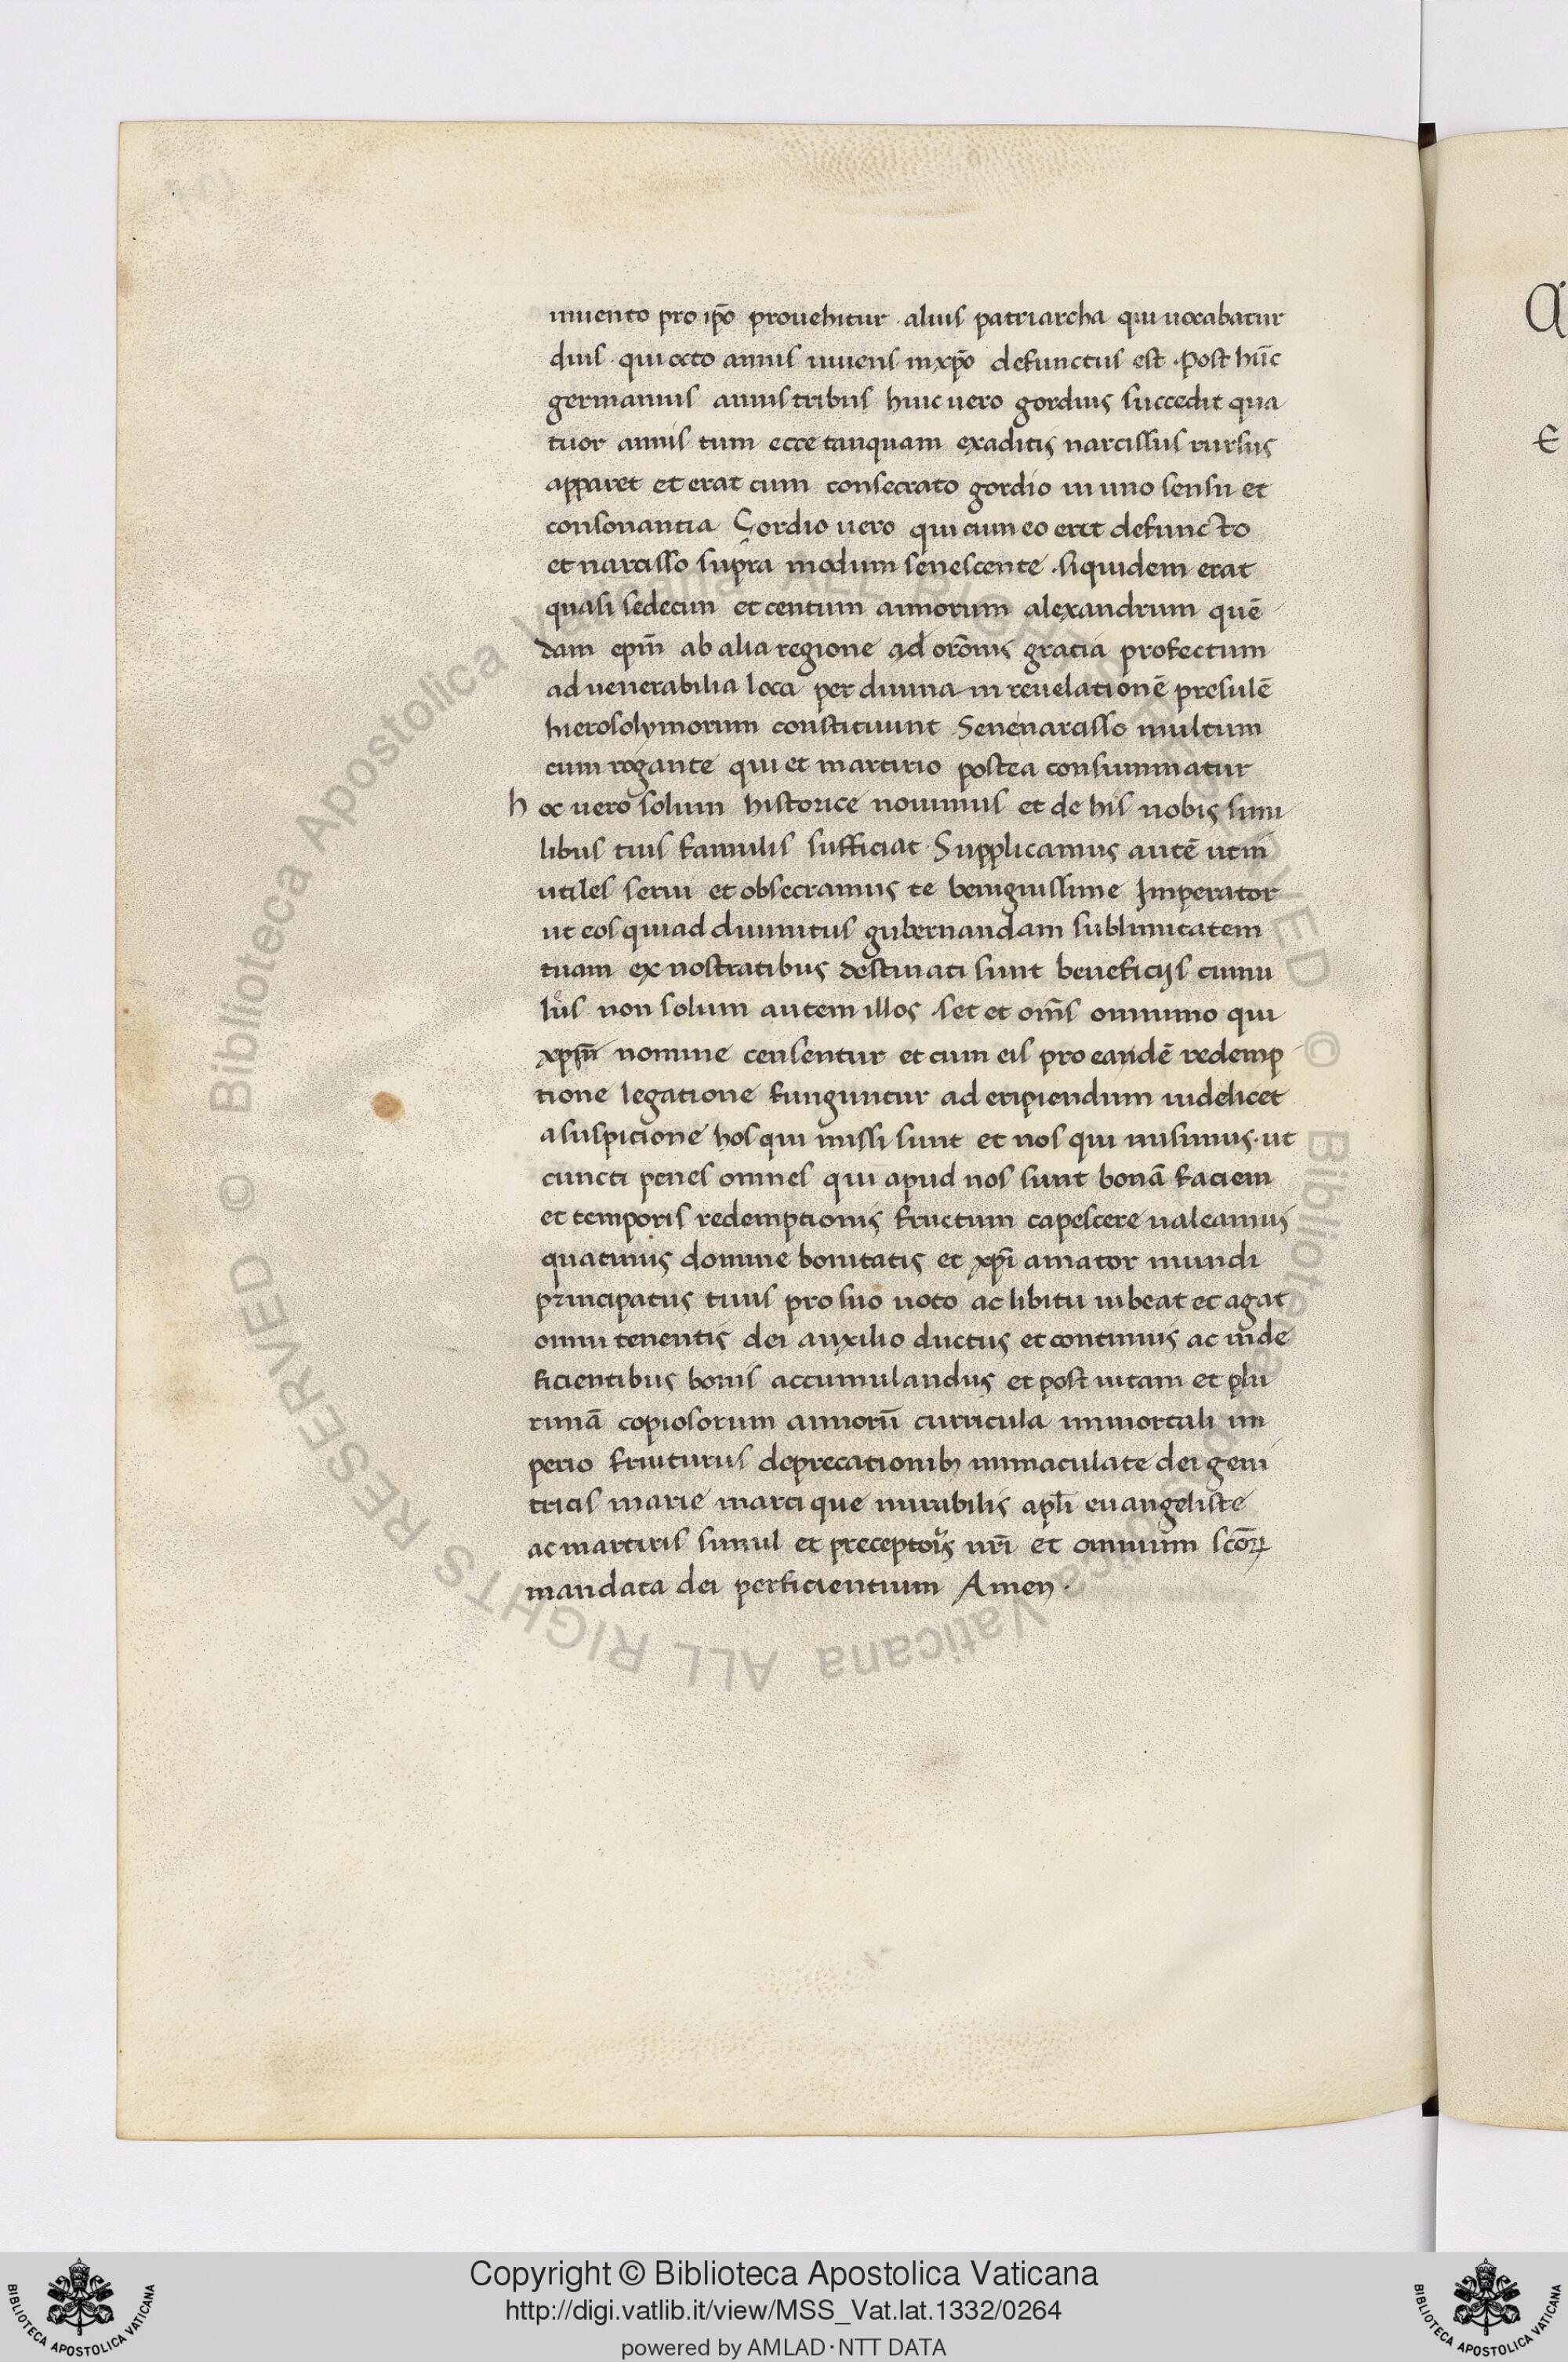 inuento pro ip̄o prouehitur. alius patriarcha qui uocabatur
dius. qui octo annis uiuens in xp̄o defunctus est. Post hūc
germanius annis tribus huic uero gordius succedit qua
tuor annis tum ecce tanquam exaditis narcissus rursus
apparet et erat cum consecrato gordio in uno sensu et
consonantia Gordio uero qui cum eo erat defuncto
et narcisso supra modum senescente. siquidem erat
quasi sedecim et centum annorum alexandrum quē
dam epm̄ ab alia regione ad orōnis gracia profectum
ad uenerabilia loca per diuinam reuelationē presulē
hierosolymorum constituunt Senenarcisso multum
eum rogante qui et martirio postea consummatur
hoc uero solum historice nouimus et de his nobis simi
libus tuis famulis sufficiat. Supplicamus autē ut in
utiles serui et obsecramus te benignissime Imperator
ut eos qui ad diuinitus gubernandam sublimitatem
tuam ex nostratibus destinati sunt beneficijs cumu
les non solum autem illos. set et om̄s omnino qui
nomine censentur et cum eis pro eandē redemp
tione legatione funguntur ad eripiendum uidelicet
a suspicione hos qui missi sunt et nos qui misimus. ut
cuncti penes omnes qui apud nos sunt bonā faciem
et temporis redemptionis fructum capescere ualeamus
quatinus domine bonitatis et xp̄i amator mundi
principatus tuus pro suo uoto ac libitu iubeat et agat
omni tenentis dei auxilio ductus et continuis ac inde
ficientibus bonis accumulandus et post uitam et plu
rimā copiosorum annorū curricula immortali im
perio fruiturus deprecationib; immaculate dei geni
tricis marie marci que mirabilis apl̄i euangeliste
ac martiris simul et preceptoris nr̄i et omnium scōꝝ
mandata dei perficientium Amen.
A
E
Copyright © Biblioteca Apostolica Vaticana
http://digi.vatlib.it/view/MSS_Vat.lat.1332/0264
powered by AMLAD·NTT DATA
BIBLIOTECA APOSTOLICA VATICANA
BIBLIOTECA APOSTOLICA VATICANA
© Biblioteca Apostolica Vaticana ALL RIGHTS RESERVED © Biblioteca Apostolica Vaticana ALL RIGHTS RESERVED